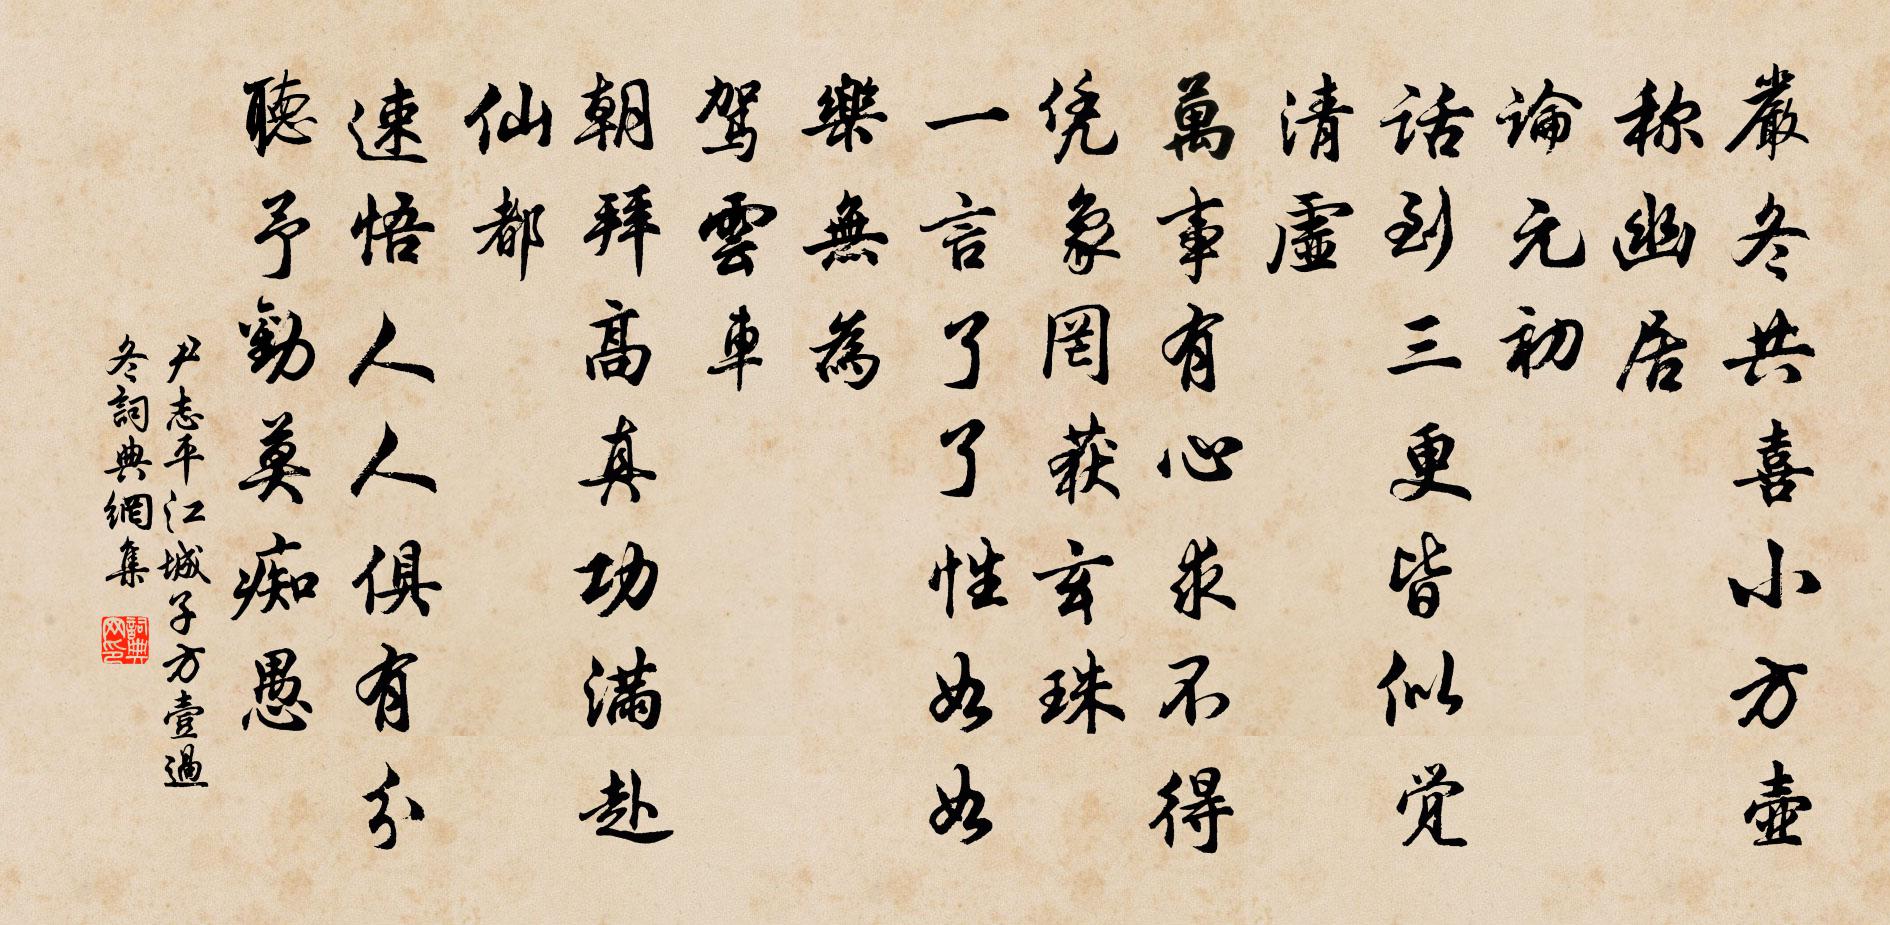 嚴冬共喜小方壺
称幽居
論元初
話到三更皆似覺
清虛
萬事有心求不得
凭象罔获玄珠
一言了了性如如
樂無為
駕雲車
朝拜高真功滿赴
仙都
速悟人人俱有分
聽予勸莫痴愚
尹志平江城子方壹過
冬詞典網集
詞典网印